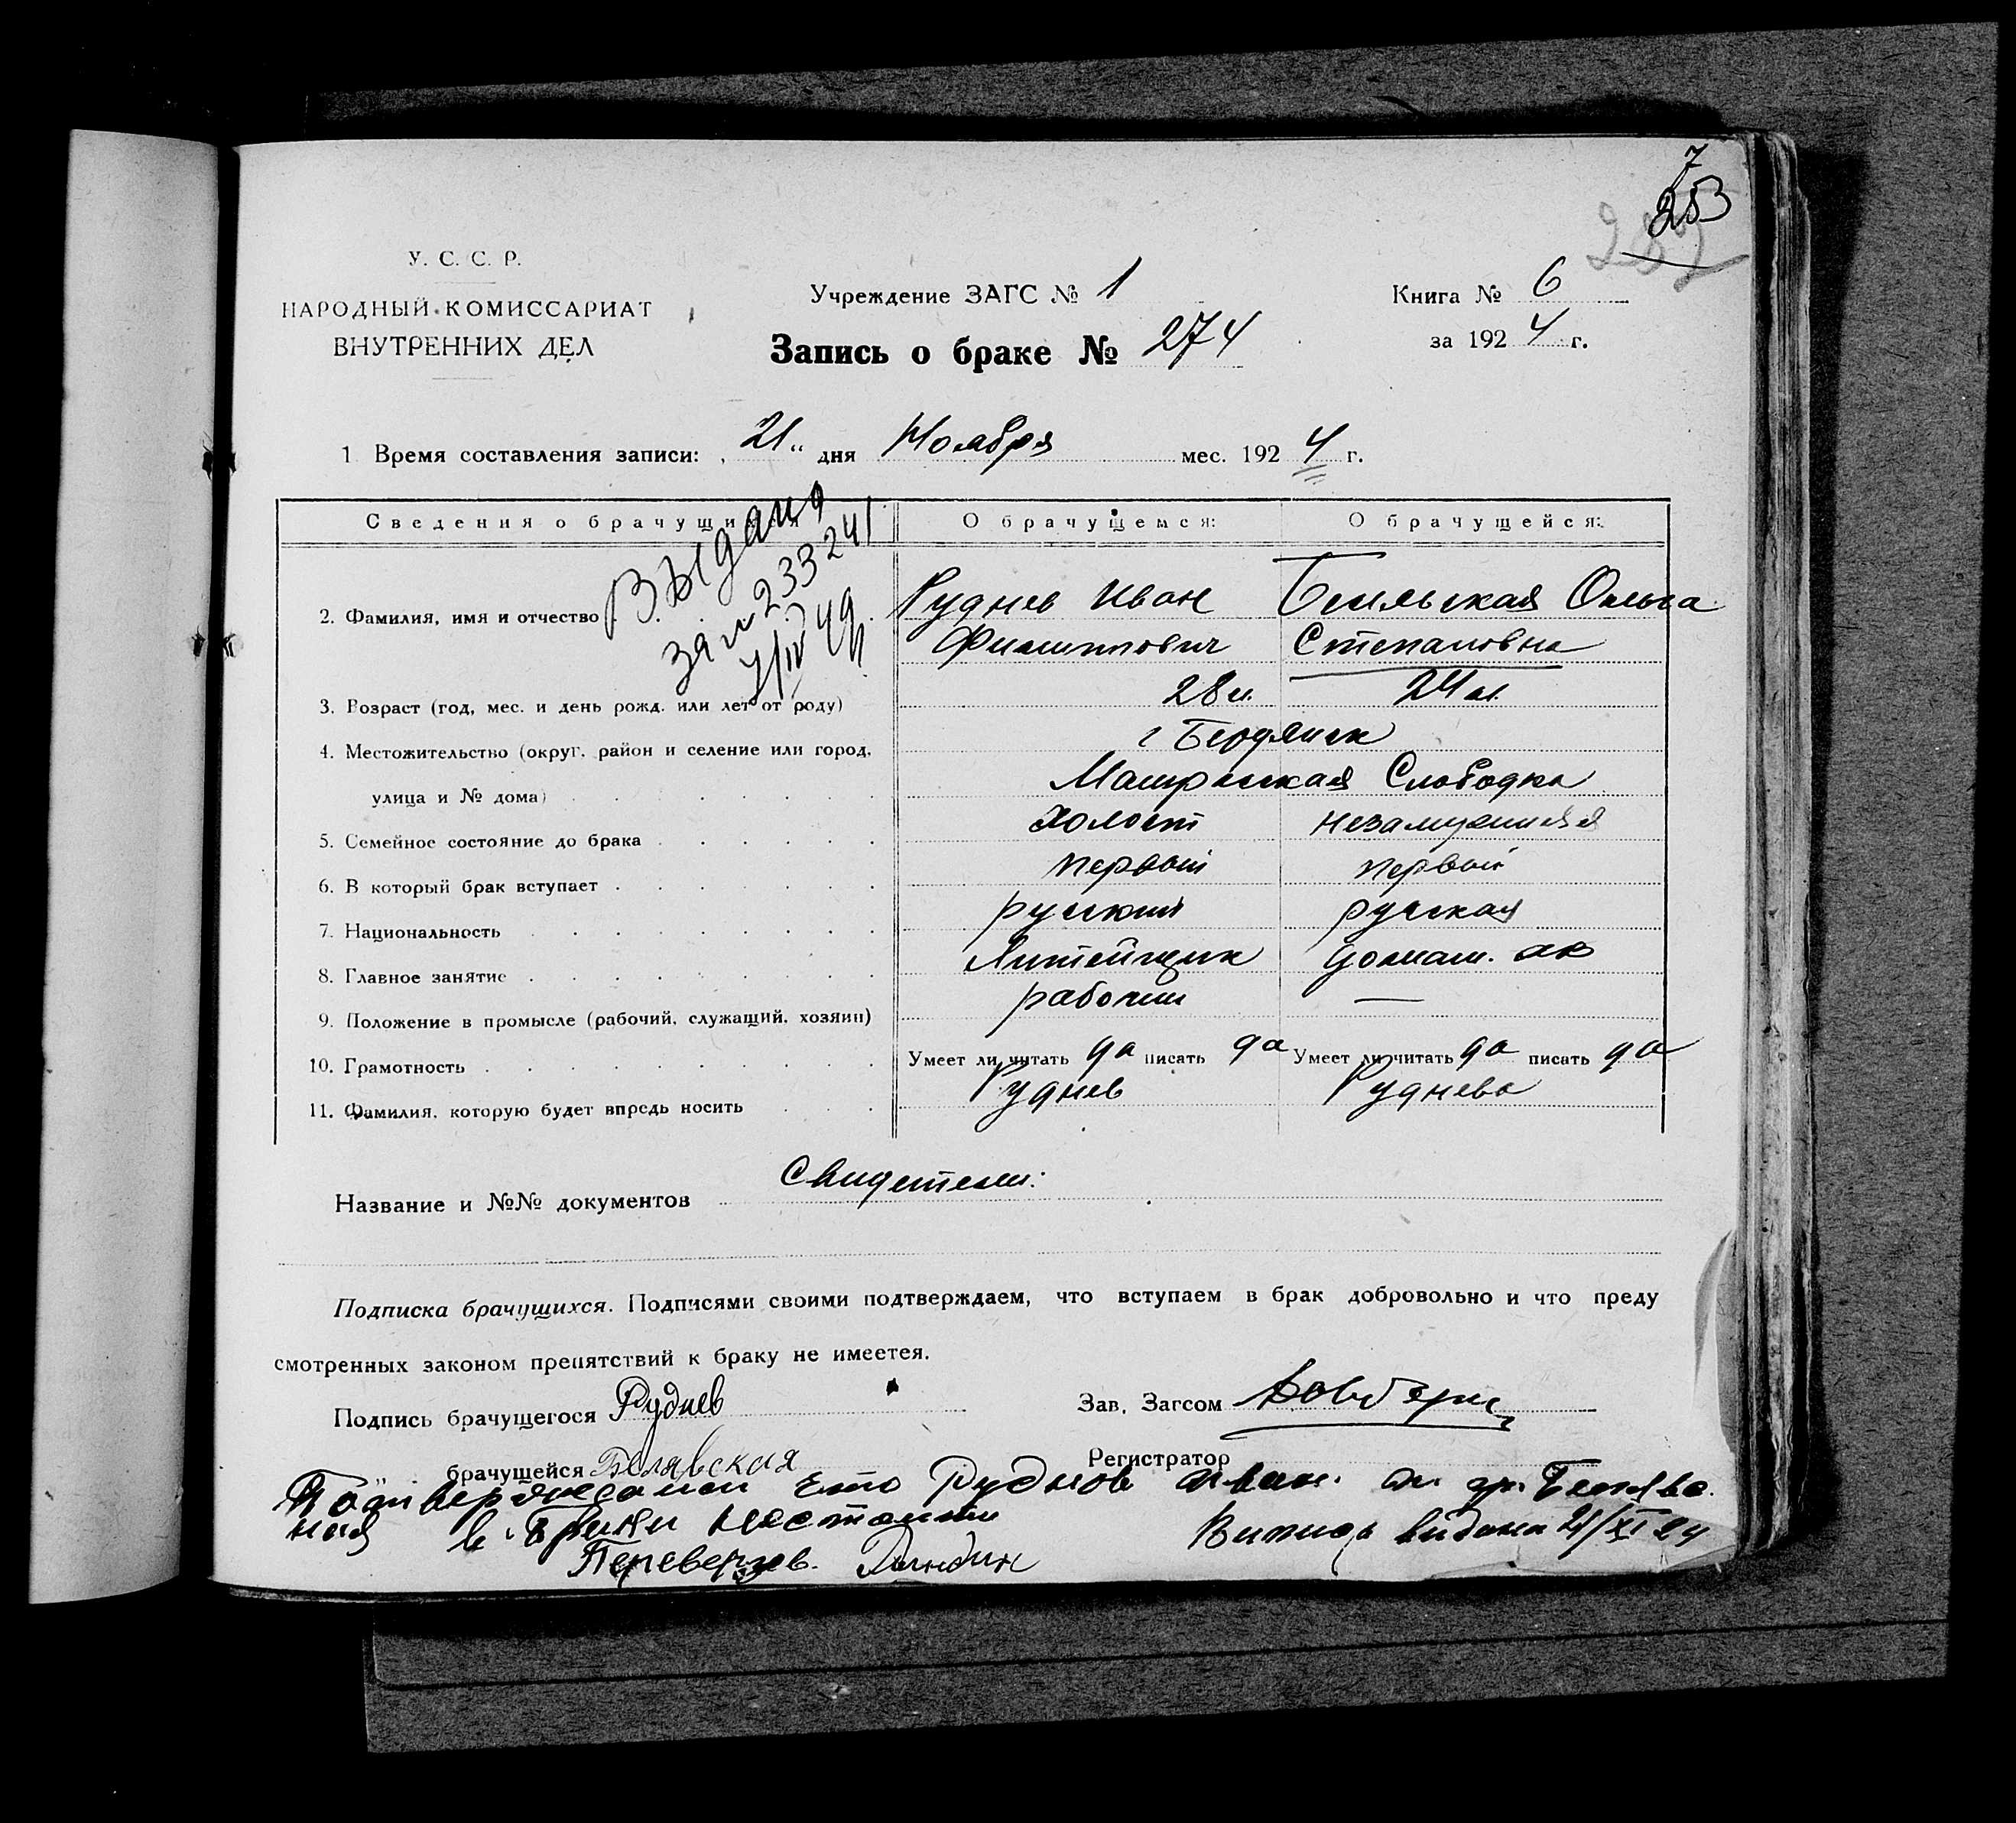 7
253
У. С. С. Р.
НАРОДНЫЙ КОМИССАРИАТ
ВНУТРЕННИХ ДЕЛ
Учреждение ЗАГС № 1
Книга № 6
за 1924 г.
Запись о браке № 274
1 Время составления записи: „21“ дня Ноября мес. 1924 г.
Сведения о брачущихся
О брачущемся:
О брачущейся:
Выдано
233241
2. Фамилия, имя и отчество Руднев Иван Ольга
Филиппович Степановна
3. Возраст (год, мес. и день рожд. или лет от роду) 28 л. 24 л.
4. Местожительство (округ, район и селение или город, г Бердянск
улица и № дома) Слободка
5. Семейное состояние до брака холост незамужняя
6. В который брак вступает первый первый
7. Национальность русский русская
8. Главное занятие Литейщик домаш.
9. Положение в промысле (рабочий, служащий, хозяин) рабочий —
10. Грамотность Умеет ли читать да писать да Умеет ли читать да писать да
11. Фамилия, которую будет впредь носить Руднев Руднева
Название и №№ документов Свидетели:
Подписка брачущихся. Подписями своими подтверждаем, что вступаем в брак добровольно и что преду
смотренных законом препятствий к браку не имеется.
Подпись брачущегося Руднев
Зав. Загсом
„ брачущейся Белявская
Регистратор
Руднов
Переверзев.